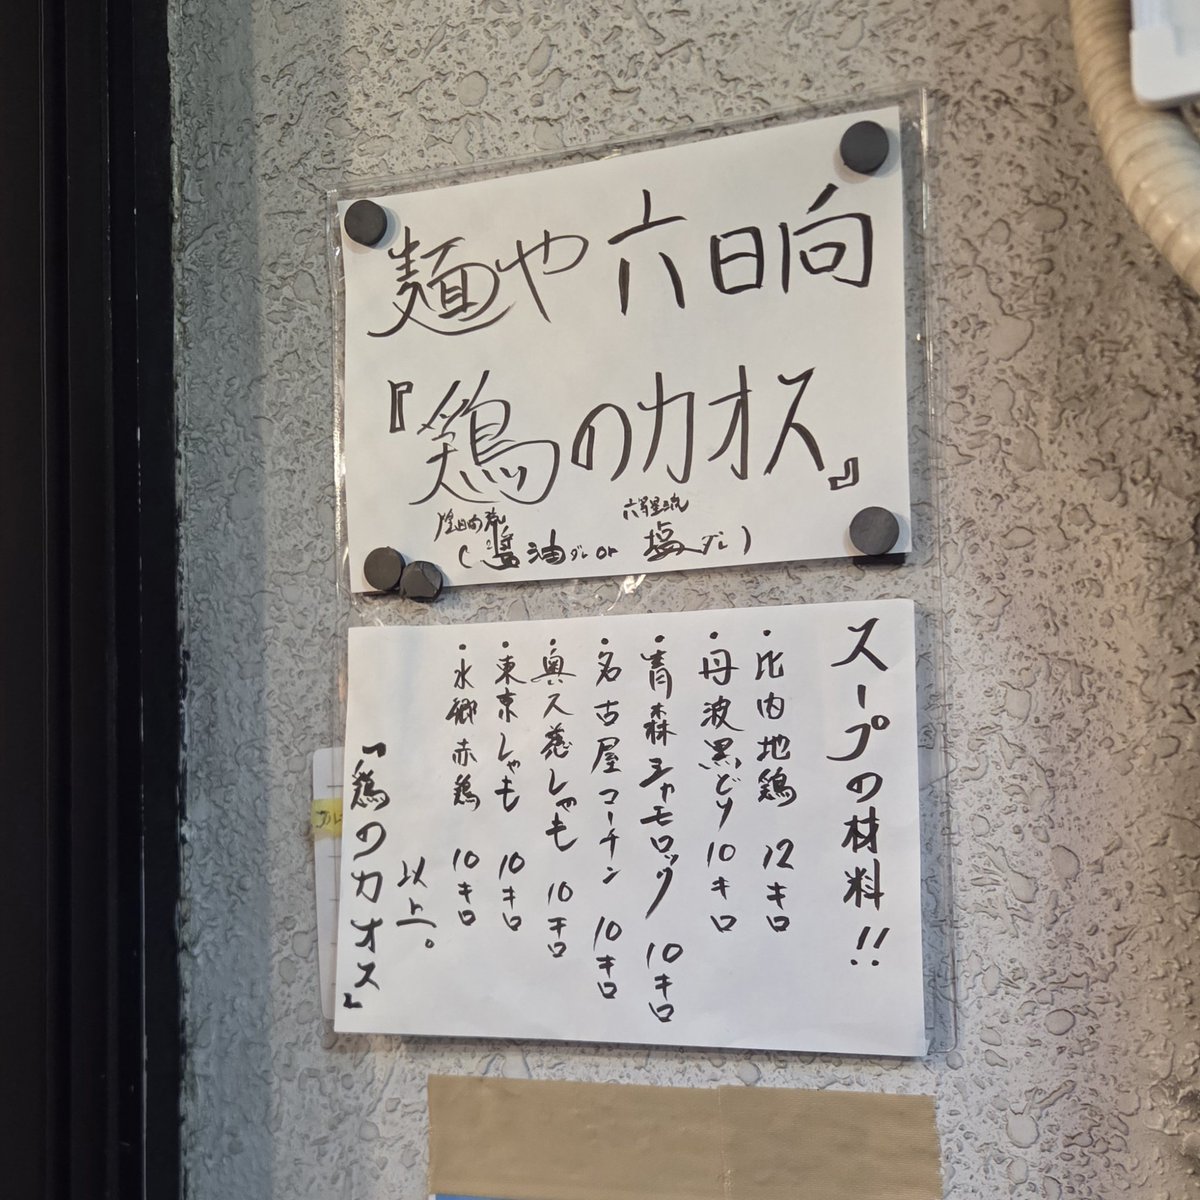 麺や 六日向
『鶏のカオス』
陰日向流 六等星流
(醤油ダレ or 塩ダレ)
スープの材料!!
・比内地鶏 12キロ
・丹波黒どり 10キロ
・青森シャモロック 10キロ
・名古屋コーチン 10キロ
・奥久慈しゃも 10キロ
・東京しゃも 10キロ
・水郷赤鶏 10キロ
以上。
『鶏のカオス』